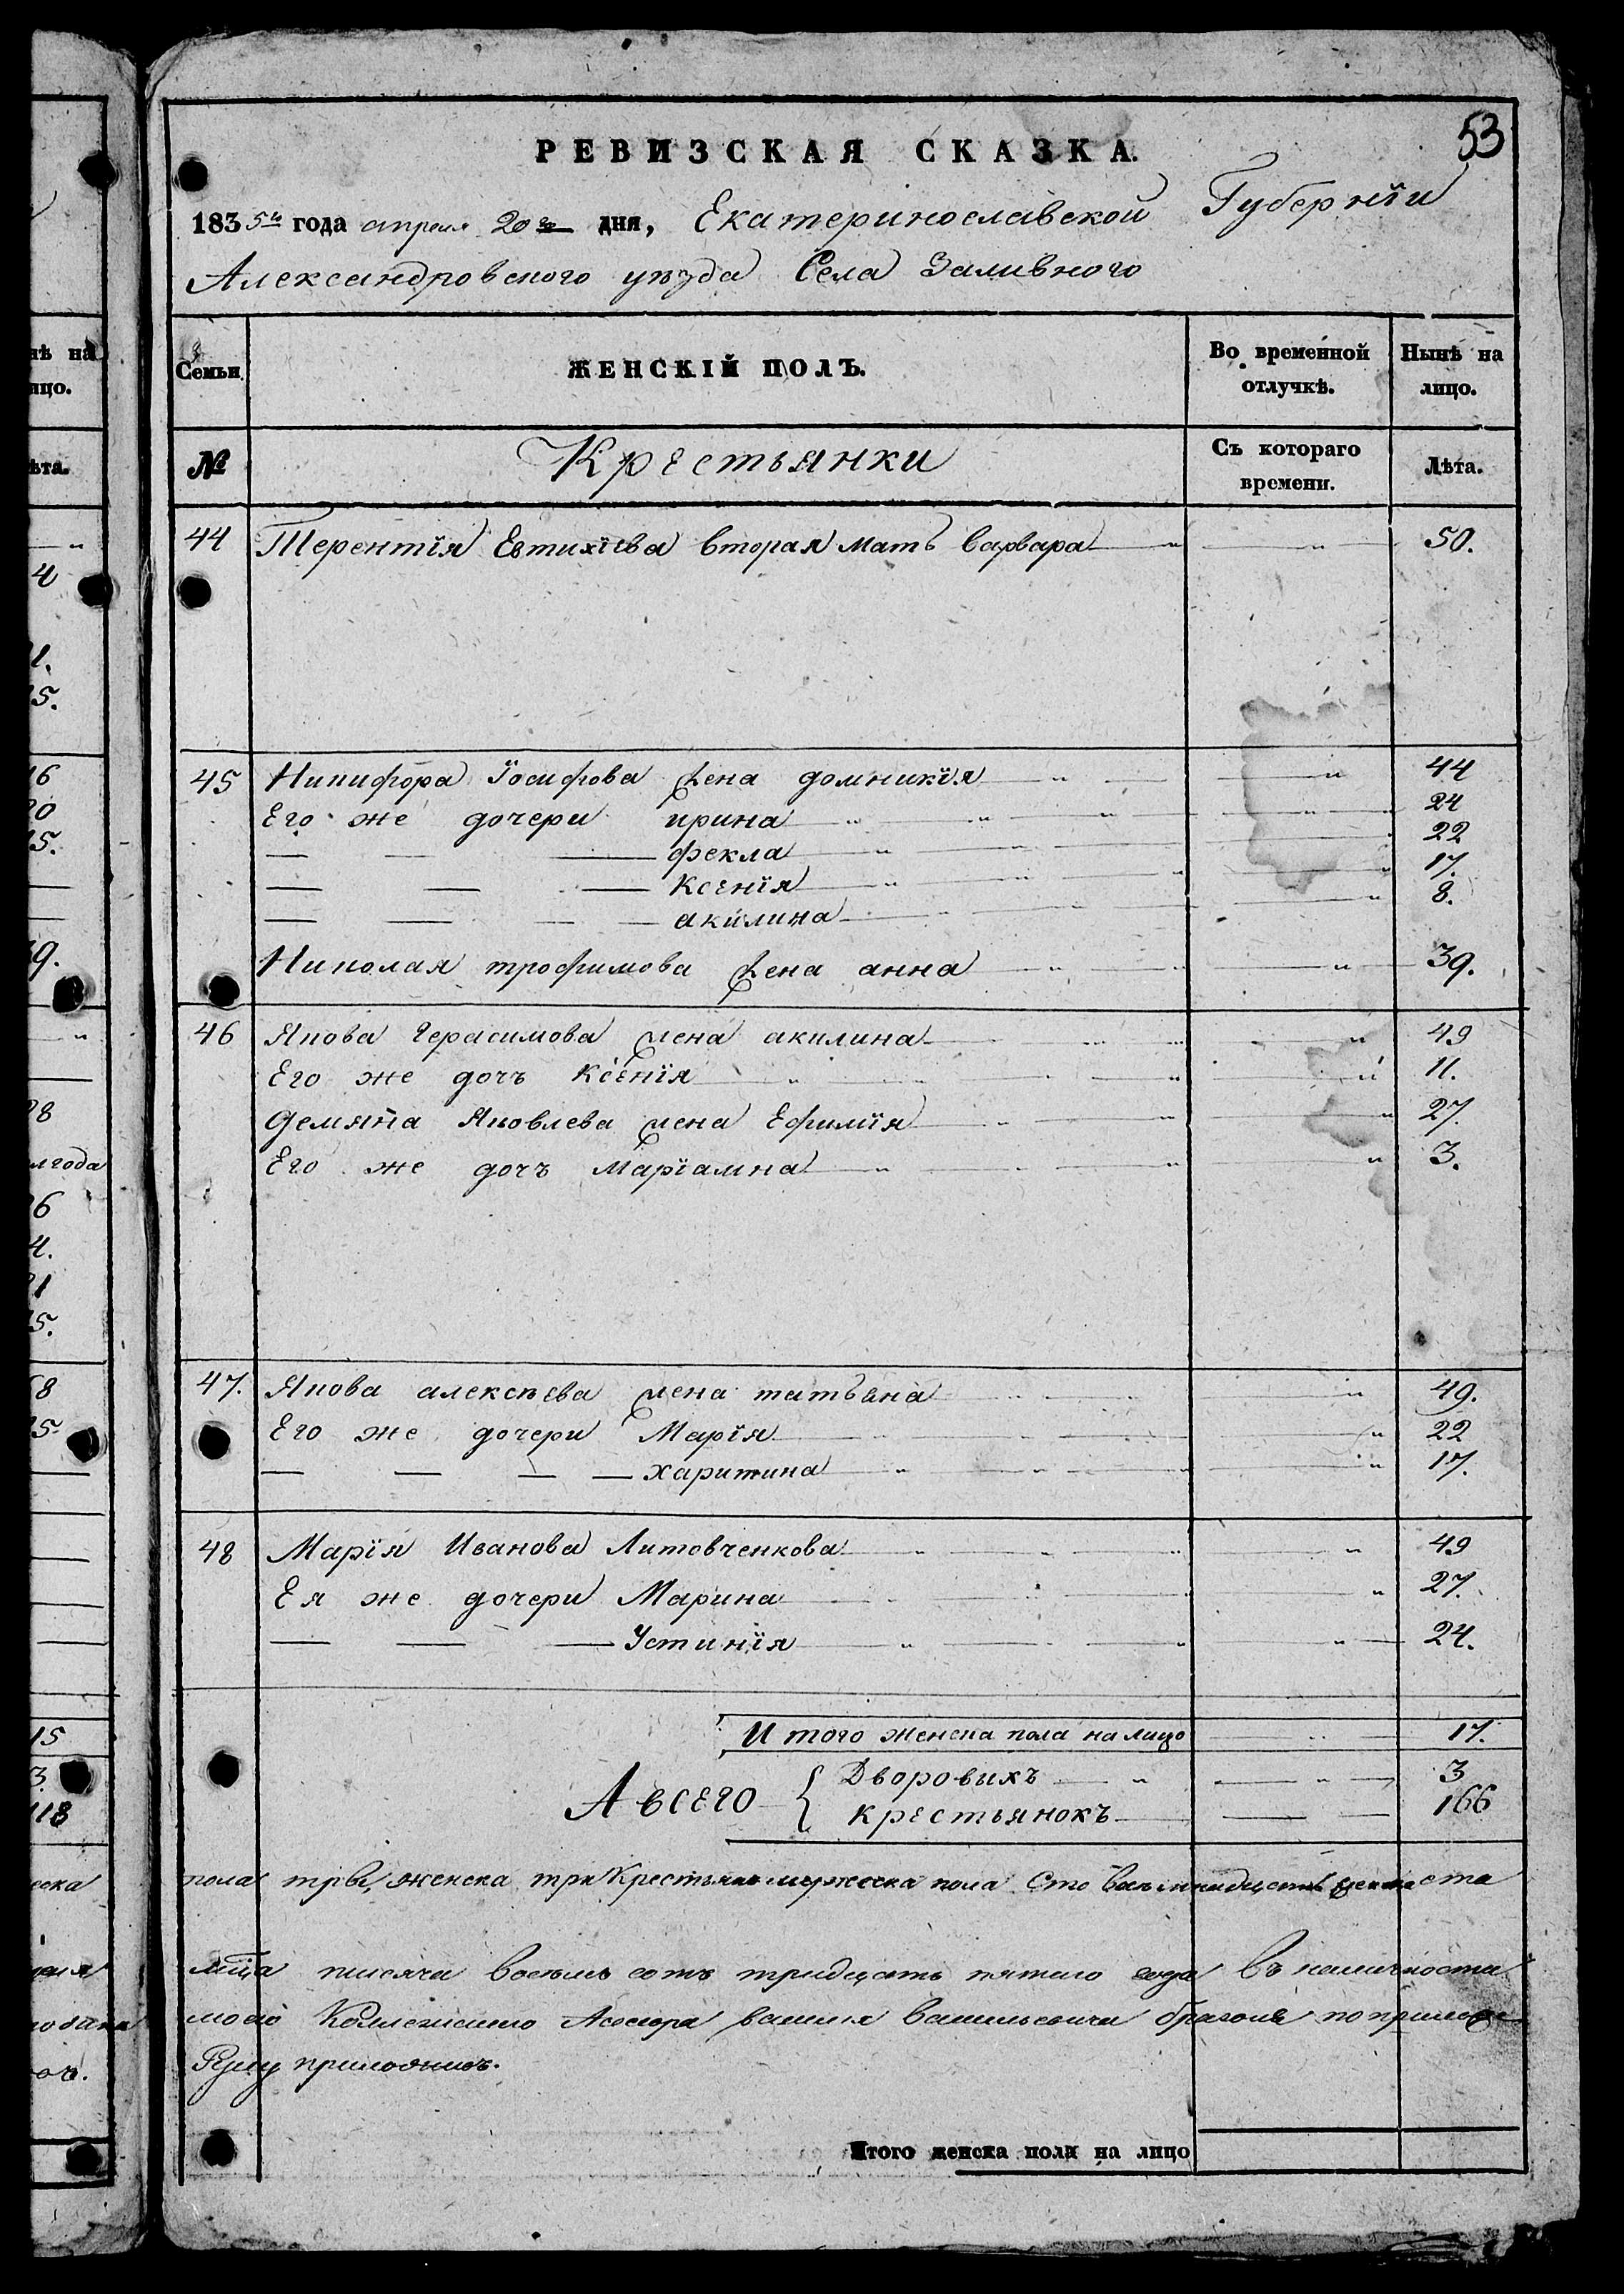 53
РЕВИЗСКАЯ СКАЗКА.
1835го года апреля 20го дня, Екатеринославской Губернїи
Александровского уѣзда Села Заливного
Семьи
ЖЕНСКІЙ ПОЛЪ.
Во временной отлучкѣ.
Нынѣ на лицо.
№
Крестьянки
Съ котораго времени.
Лѣта.
44 Терентїя Евтихїева вторая мать варвара 50.
45 Никифора Їосифова жена домникїя 44
Его же дочери ирина 24
фекла 22
Ксенїя 17.
акилина 8.
Николая трофимова жена анна 39.
46 Якова Герасимова жена акилина 49
Его же дочъ Ксенїя 11.
Демяна Яковлева жена Ефимїя 27.
Его же дочъ Марїамна 3.
47. Якова алексѣева жена татьана 49.
Его же дочери Марїя 22
харитина 17.
48 Марїя Иванова Литовченкова 49
Ея же дочери Марина 27.
Устинїя 24.
Итого женска пола на лицо 17.
А всего { Дворовыхъ 3
крестьянокъ 166
пола три, женска три Крестьянъ мужеска пола Сто ста
тысяча восемь сотъ тридцать пятаго года въ
моего Колежскаго Асесора василя васильевича
Руку приложилъ.
Итого женска пола на лицо
нѣ на
ицо.
ѣта.
4
1.
15.
16
20
15.
28
15
3.
118